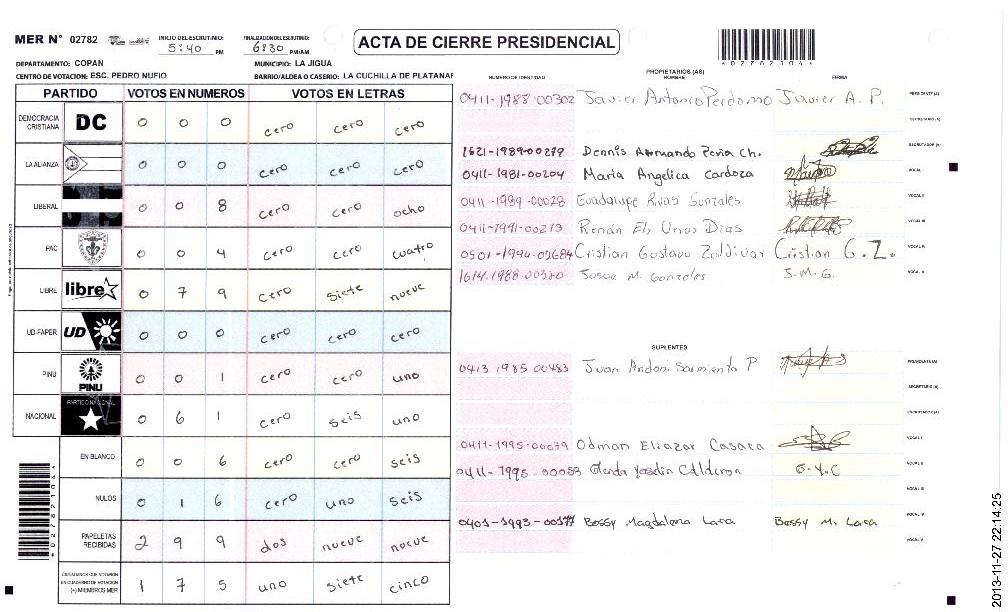 MER N° 02782
INICIO DEL ESCRUTINIO: 5:40 PM
FINALIZACION DEL ESCRUTINIO: 6:30 PM/AM
ACTA DE CIERRE PRESIDENCIAL
*02782104*
DEPARTAMENTO: COPAN
MUNICIPIO: LA JIGUA
CENTRO DE VOTACION: ESC. PEDRO NUFIO
BARRIO/ALDEA O CASERIO: LA CUCHILLA DE PLATANAR
PARTIDO VOTOS EN NUMEROS VOTOS EN LETRAS
DEMOCRACIA CRISTIANA DC 0 0 0 cero cero cero
LA ALIANZA 0 0 0 cero cero cero
LIBERAL 0 0 8 cero cero ocho
PAC 0 0 4 cero cero cuatro
LIBRE libre 0 7 9 cero siete nueve
UD-FAPER UD 0 0 0 cero cero cero
PINU PINU 0 0 1 cero cero uno
NACIONAL PARTIDO NACIONAL 0 6 1 cero seis uno
EN BLANCO 0 0 6 cero cero seis
NULOS 0 1 6 cero uno seis
PAPELETAS RECIBIDAS 2 9 9 dos nueve nueve
CIUDADANOS QUE VOTARON EN CUADERNO DE VOTACION (+) MIEMBROS MER 1 7 5 uno siete cinco
*02782104*
PROPIETARIOS (AS)
NUMERO DE IDENTIDAD NOMBRE FIRMA
0411-1988-00302 Javier Antonio Perdomo Javier A. P. PRESIDENTE (A)
SECRETARIO (A)
1621-1989-00279 Dennis Armando Peña Ch. ESCRUTADOR (A)
0411-1981-00204 Maria Angelica Cardoza VOCAL I
0411-1989-00028 Guadalupe Rivas Gonzales VOCAL II
0411-1991-00213 Renán VOCAL III
Cristian Gustavo Zaldivar Cristian G. Z. VOCAL IV
M. Gonzales J. M. G. VOCAL V
SUPLENTES
0413 1985 00483 Juan Sarmiento P PRESIDENTE (A)
SECRETARIO (A)
ESCRUTADOR (A)
0411-1995-00079 Odman Eliazar VOCAL I
0411-1995-00053 Calderon G.Y.C VOCAL II
VOCAL III
Bessy Magdalena Lara Bessy M. Lara VOCAL IV
VOCAL V
2013-11-27 22:14:25